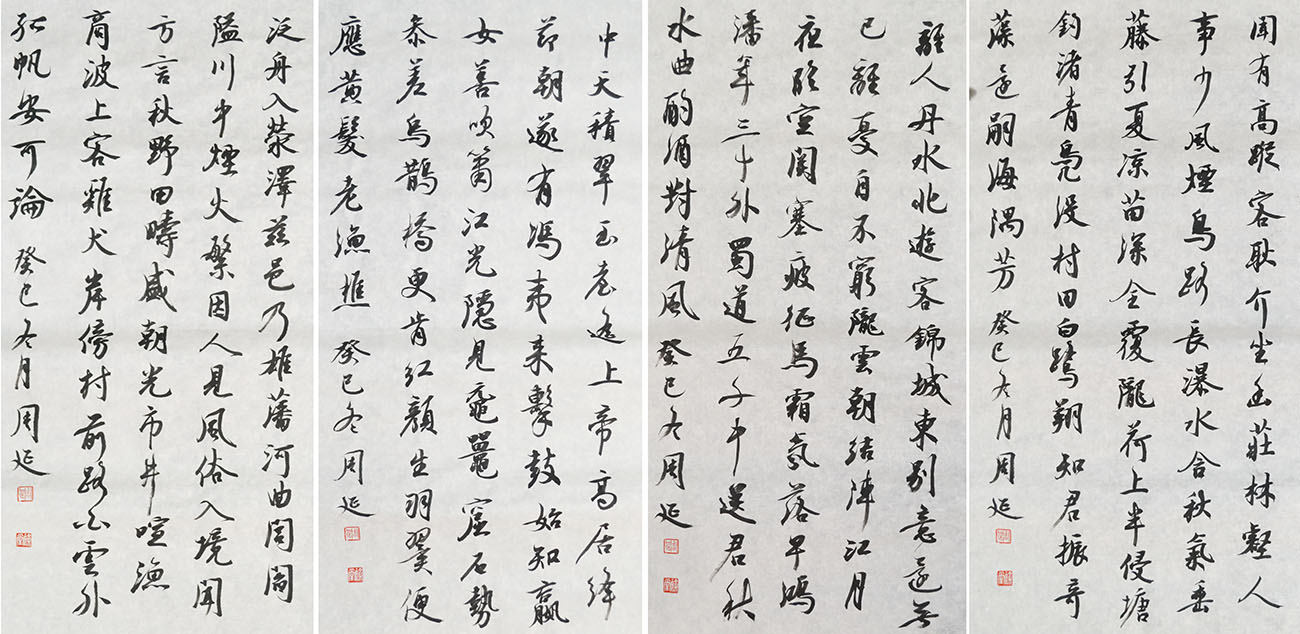 聞有高蹤客耿介坐幽莊林壑人
事少風煙鳥路長瀑水含秋氣垂
藤引夏涼苗深全覆隴荷上半侵塘
釣渚青鳧沒村田白鷺翔知君振奇
藻還嗣海隅芳 癸巳冬月周延
離人丹水北遊客錦城東別意還無
已離憂自不窮隴雲朝結陣江月
夜臨空關塞疲征馬霜氛落早鴻
潘年三十外蜀道五千中送君秋
水曲酌酒對清風 癸巳冬周延
中天積翠玉臺遙上帝高居絳
節朝遂有馮夷來擊鼓始知嬴
女善吹簫江光隱見黿鼉窟石勢
參差烏鵲橋更肯紅顏生羽翼便
應黃髮老漁樵 癸巳冬周延
泛舟入滎澤茲邑乃雄藩河曲閭閻
隘川中煙火繁因人見風俗入境聞
方言秋野田疇盛朝光市井喧漁
商波上客雞犬岸傍村前路白雲外
孤帆安可論 癸巳冬月周延